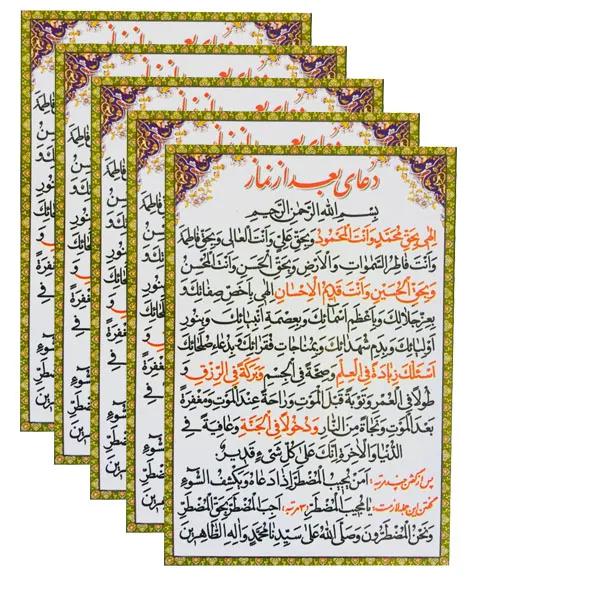 دعای بعد از نماز
بسم الله الرحمن الرحیم
الهی بحق محمد و انت المحمود و بحق علی و انت العالی و بحق فاطمة
و انت فاطر السموات و الارض و بحق الحسن و انت المحسن
و بحق الحسین و انت قدیم الاحسان الهی باخص صفاتک و
بعز جلالک و باعظم اسمائک و بعصمة انبیائک و بنور
اولیائک و بدم شهدائک و بمناجات فقرائک و بدعاء صلحائک
اسئلک زیادة فی العلم و صحة فی الجسم و برکة فی الرزق و
طولا فی العمر و توبة قبل الموت و راحة عند الموت و مغفرة
بعد الموت و نجاة من النار و دخولا فی الجنة و عافیة فی
الدنیا و الاخرة انک علی کل شیء قدیر
پس از گفتن چند مرتبه: امن یجیب المضطر اذا دعاه و یکشف السوء
گفتن این جمله لازمست: یا مجیب المضطر ۳ مرتبه: اجب المضطر بحق المضطر
و نحن المضطرون و صلی الله علی سیدنا محمد و اله الطاهرین